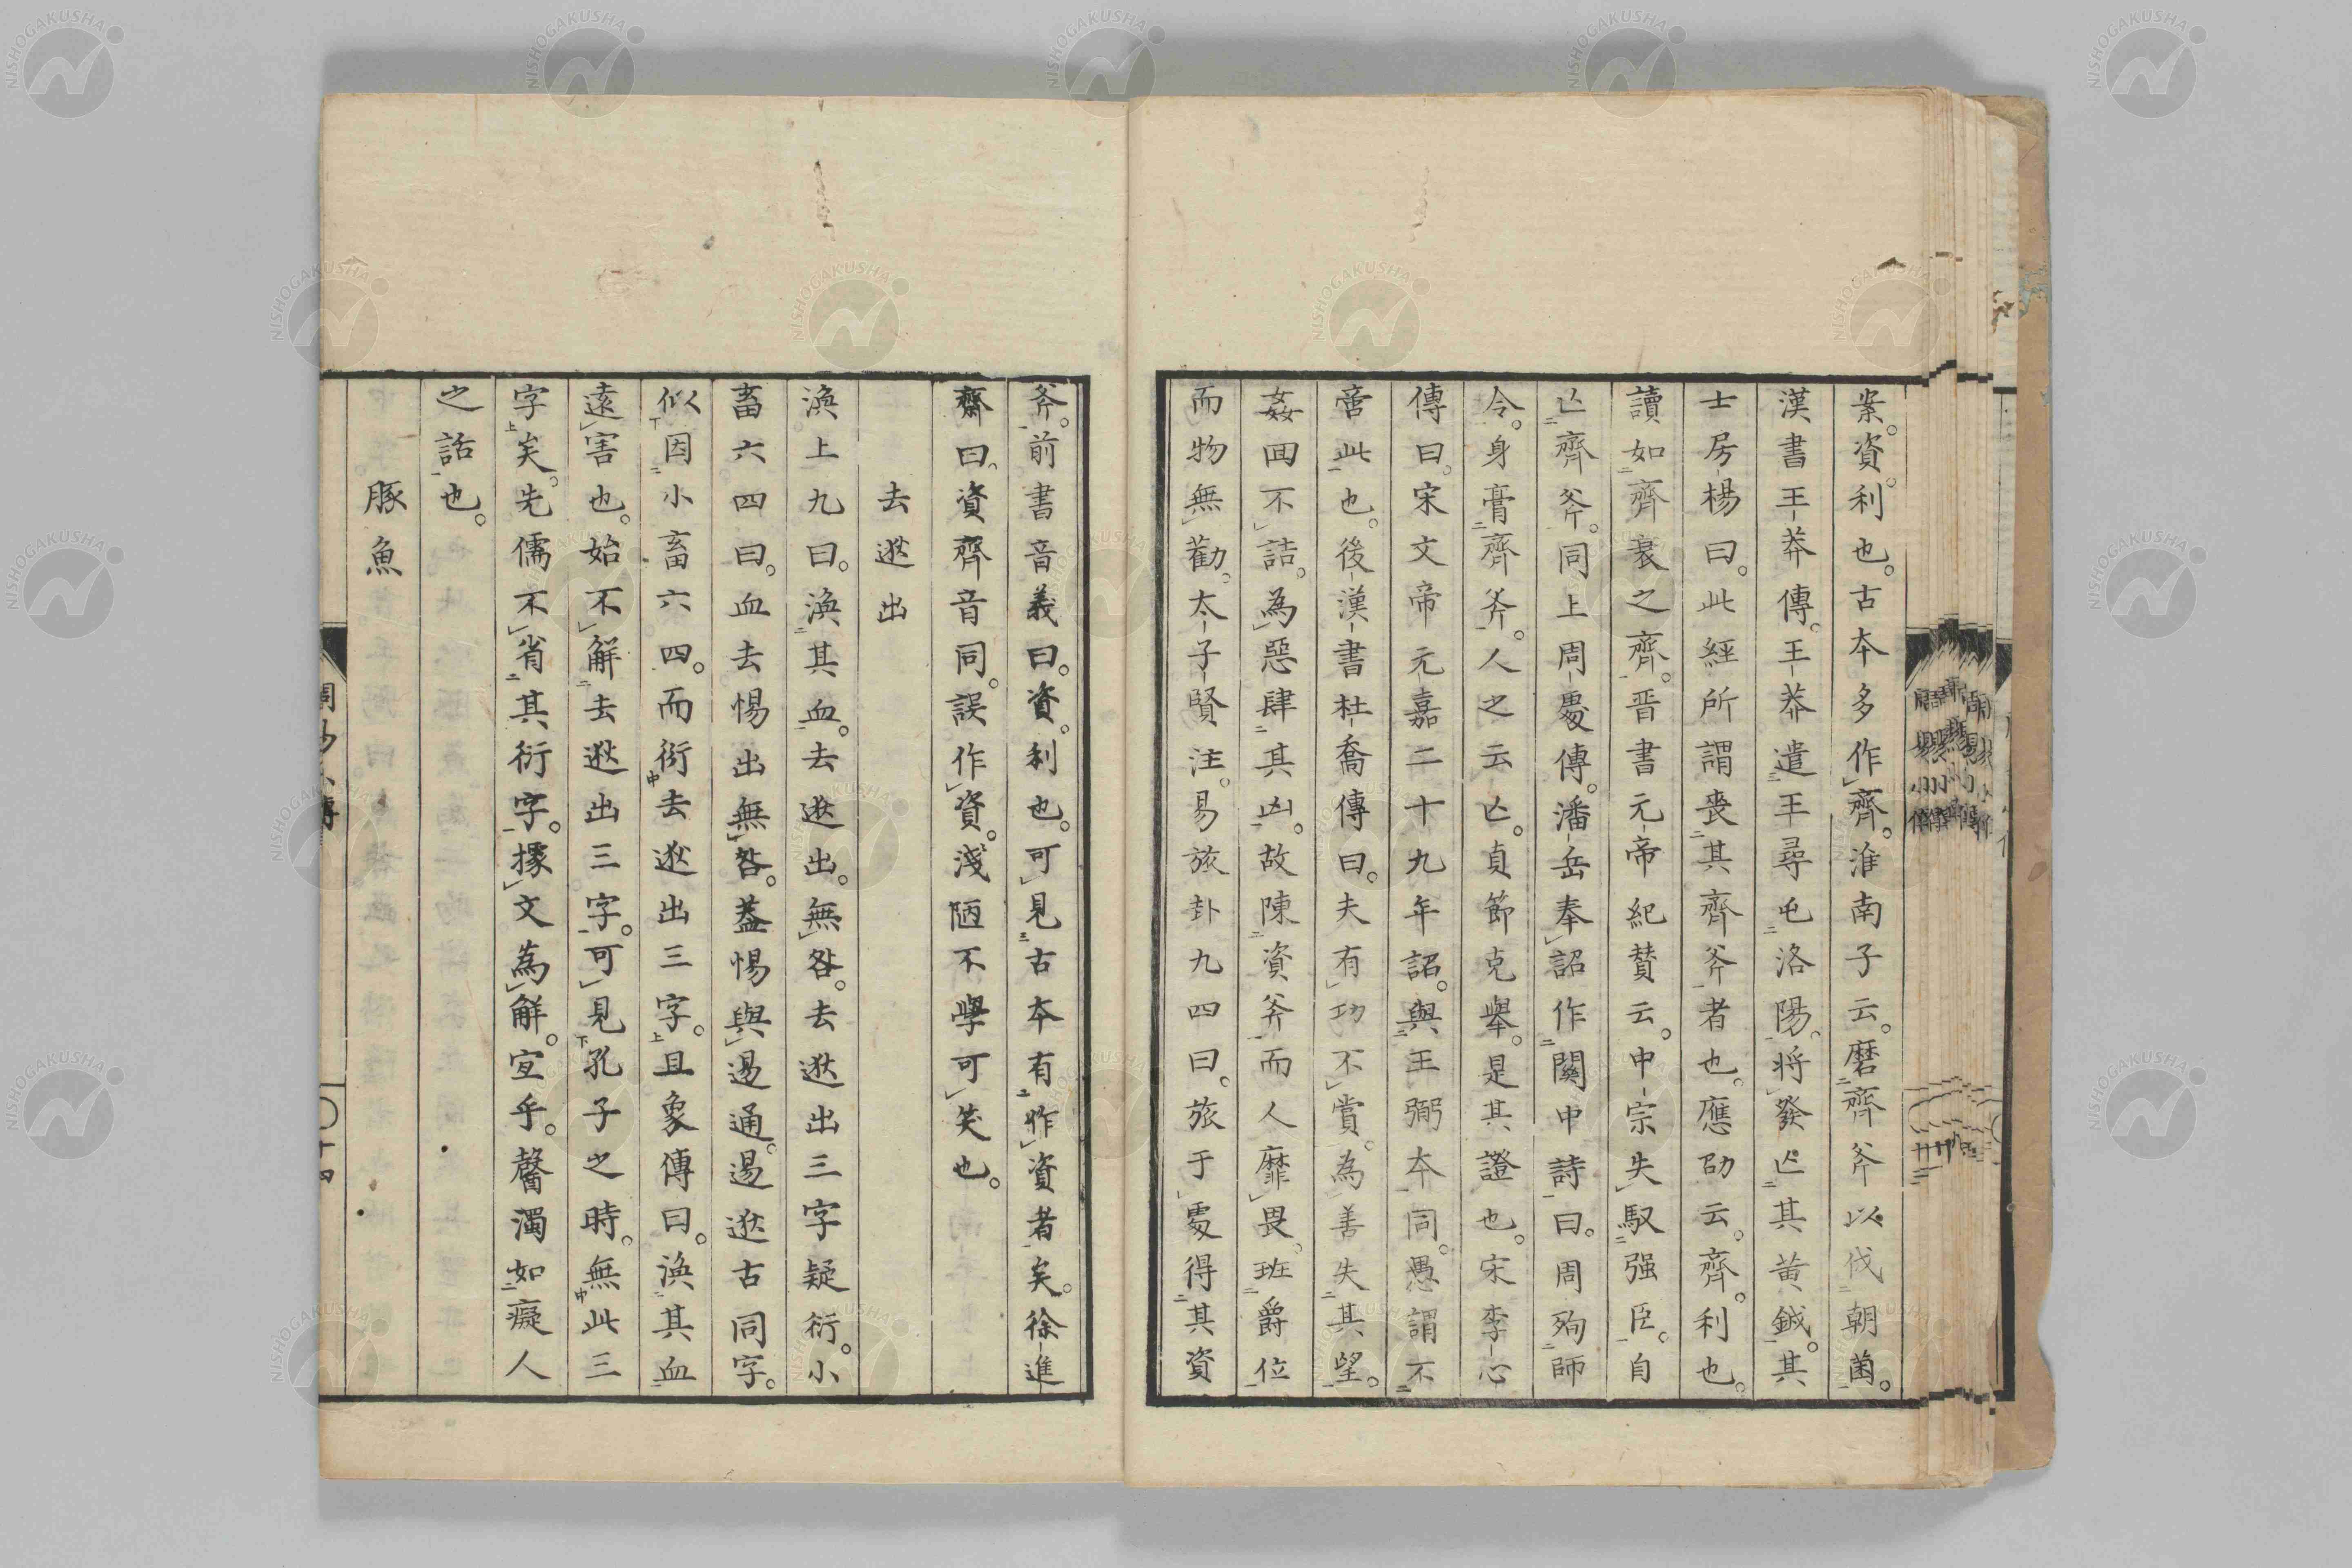 案。資。利也。古本多作齊。淮南子云。磨齊斧以伐朝菌。
漢書王莽傳。王莽遣王尋屯洛陽。将發亾其黄鉞。其
士房楊曰。此經所謂喪其齊斧者也。應劭云。齊。利也。
讀如齊衰之齊。晋書元帝紀賛云。中宗失馭强臣。自
亾齊斧。同上周處傳。潘岳奉詔作關中詩曰。周殉師
令。身膏齊斧。人之云亾。貞節克舉。是其證也。宋李心
傳曰。宋文帝元嘉二十九年詔。與王弼本同。愚謂不
啻此也。後漢書杜喬傳曰。夫有功不賞。為善失其望。
姦回不詰。為惡肆其凶。故陳資斧而人靡畏。班爵位
而物無勸。太子賢注。易旅卦九四曰。旅于處得其資
斧。前書音義曰。資。利也。可見古本有作資者矣。徐進
齋曰。資齊音同。誤作資。淺陋不學可笑也。
去逖出
渙上九曰。渙其血。去逖出。無咎。去逖出三字疑衍。小
畜六四曰。血去惕出無咎。蓋惕與逷通。逷逖古同字。
似因小畜六四。而衍去逖出三字。且象傳曰。渙其血
遠害也。始不解去逖出三字。可見孔子之時。無此三
字矣。先儒不省其衍字。據文為解。宜乎。醟濁如癡人
之話也。
豚魚
十四
NISHOGAKUSHA